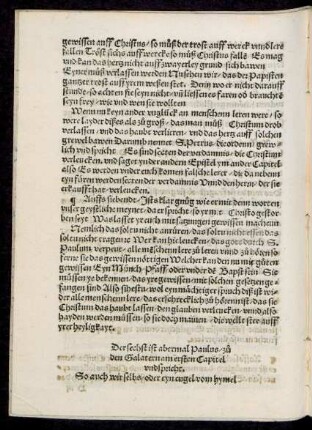 gewissen auff Christus / so můß der trost auff werck vnd lere
fallen Trost sichs auff werck e so můß Christus fallē Es mag
vnd kan das hertz nicht auff zwayerley grund sich bawen
Eyner můß verlassen werden Nu sehen wir / das der Papisten
gantzer trost auff yrem wesen stet Denn wo er nicht darauff
stunde / so achten sie seyn nicht / vn liessen es faren oð brauchts
seyn frey / wie vnd wen sie wollten
Wenn nu keyn ander vnglück an menschenn leren were / so
were layder dises als zů groß / das man můß Christum drob
verlassen / vnd das haubt verlieren / vnd das hertz auff solchen
grewel bawen Darumb nennet S. Petrus
vnd spricht Es sind secten der verdamnis / die Christum
verleucken / vnd saget ynd er andern Epistel ym ander Capitel
also / Es werden vnder euch kōmen falsche lerer / die da neben
eyn füren werden secten der verdamnis Vnnd den hern / der sie
erkaufft hat / verleucken.
¶ Auffs siebend / Ist s klar gnůg wie er mit denn worten
vnser geystliche meynet / da er spricht / so yemt Christo gestor
ben seyt Was lasset yr euch mit satzungen gewissen machenn
Nemlich das solt u nicht anruren / das solt u nicht essen das
solt u nicht tragen
Paulum verpeut / alle menschenn lere zů leren / vnd zů hören so
ferne sie das gewissen nötigen Welcher kan den nu mit gůten
gewissen Eyn Münch Pfaff oder vnder de Bapst sein Sie
müssen ye bekennen / das yre gewissen / mit solchen gesetzen ge
fangen sind Also sihestu / wol eyn mechtiger spruch diß ist wi
der alle menschenn lere / das erschrecklich zů hören ist / das sie
Christum das haubt lassen / den glauben verleucken / vnd al
so hayden werden müssen / so sie doch meinē / die wellt stee auff
yrer heyligkayt.
Der sechst ist abermal Paulus / zů
den Galatern am ersten Capitel
vnd spricht.
So auch wir selbs / oder eyn engel vom hymel